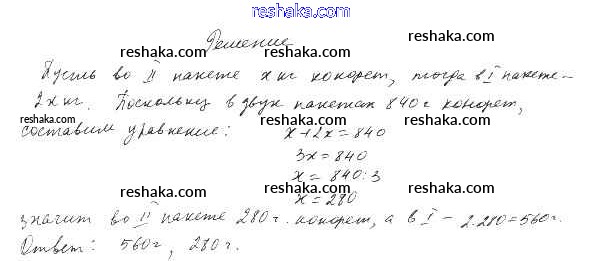 reshaka.com
Решение
Пусть во II пакете x кг конфет, тогда в I пакете –
2x кг. Поскольку в двух пакетах 840 г конфет,
составим уравнение: x + 2x = 840
3x = 840
x = 840 : 3
x = 280
значит во II пакете 280 г. конфет, а в I – 2·280 = 560 г.
Ответ: 560 г, 280 г.
reshaka.com reshaka.com reshaka.com
reshaka.com reshaka.com reshaka.com
reshaka.com reshaka.com reshaka.com
reshaka.com reshaka.com reshaka.com
reshaka.com